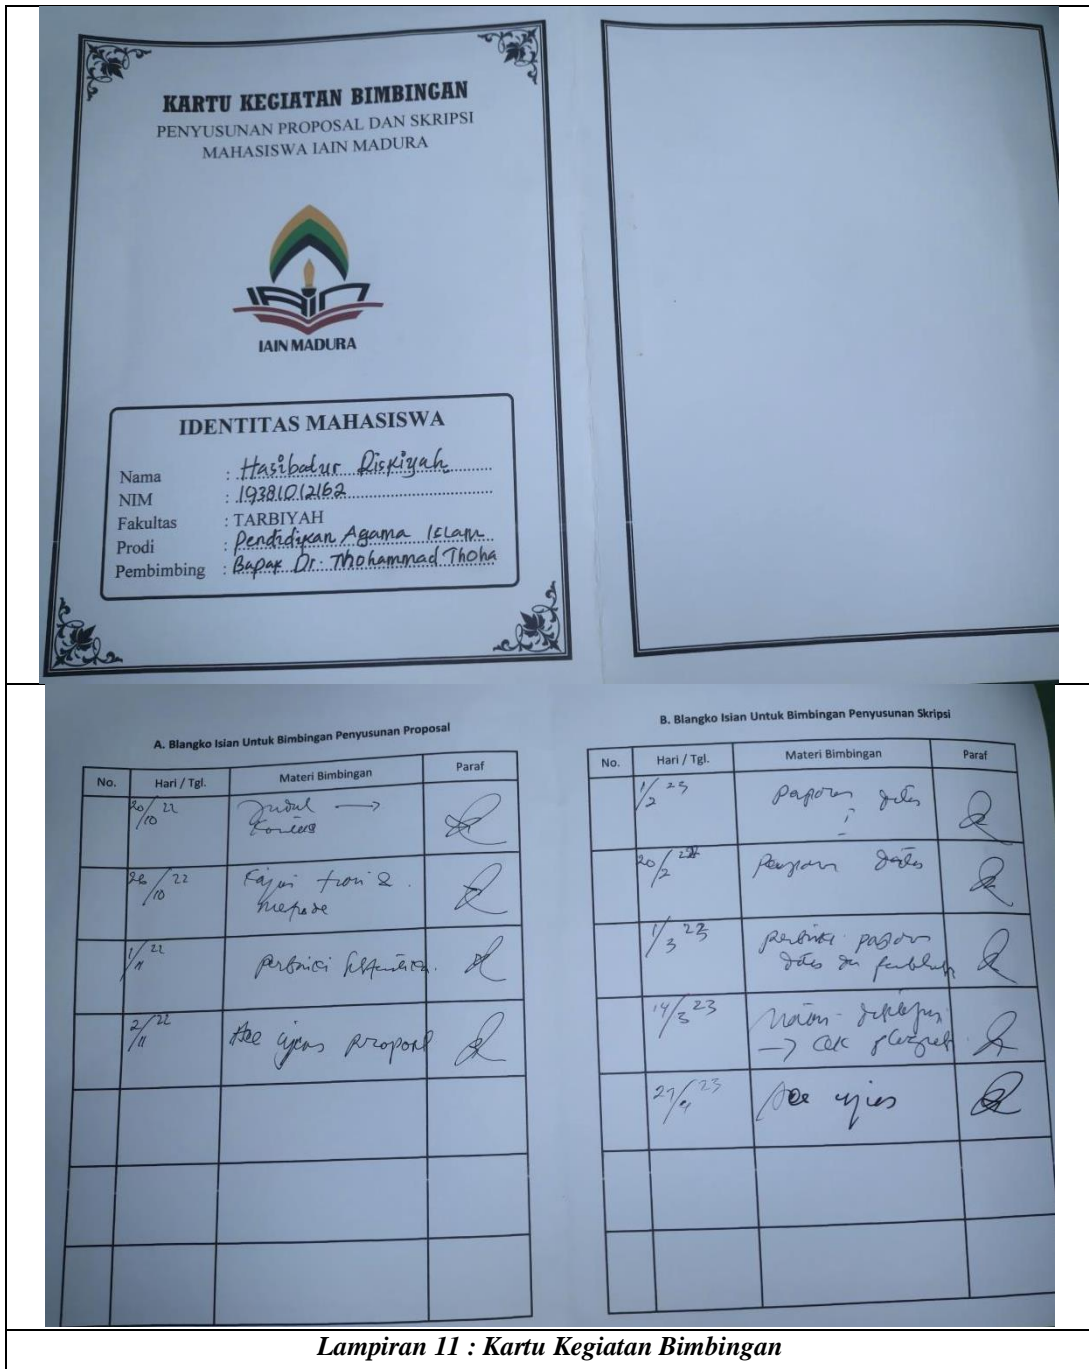 KARTU KEGIATAN BIMBINGAN
PENYUSUNAN PROPOSAL DAN SKRIPSI
MAHASISWA IAIN MADURA
IAIN
IAIN MADURA
IDENTITAS MAHASISWA
Nama : Hasibatur Riskiyah
NIM : 19381012162
Fakultas : TARBIYAH
Prodi : Pendidikan Agama Islam
Pembimbing : Bapak Dr. Mohammad Thoha
A. Blangko Isian Untuk Bimbingan Penyusunan Proposal
No. Hari / Tgl. Materi Bimbingan Paraf
20/10 22 Judul →
26/10 22 Kajian teori &
metode
1/11 22
2/11 22 Acc ujian proposal
B. Blangko Isian Untuk Bimbingan Penyusunan Skripsi
No. Hari / Tgl. Materi Bimbingan Paraf
1/2 23 Paparan data
20/2 Paparan data
1/3 23 paparan
data
14/3 23
→ cek
23 Acc ujian
Lampiran 11 : Kartu Kegiatan Bimbingan